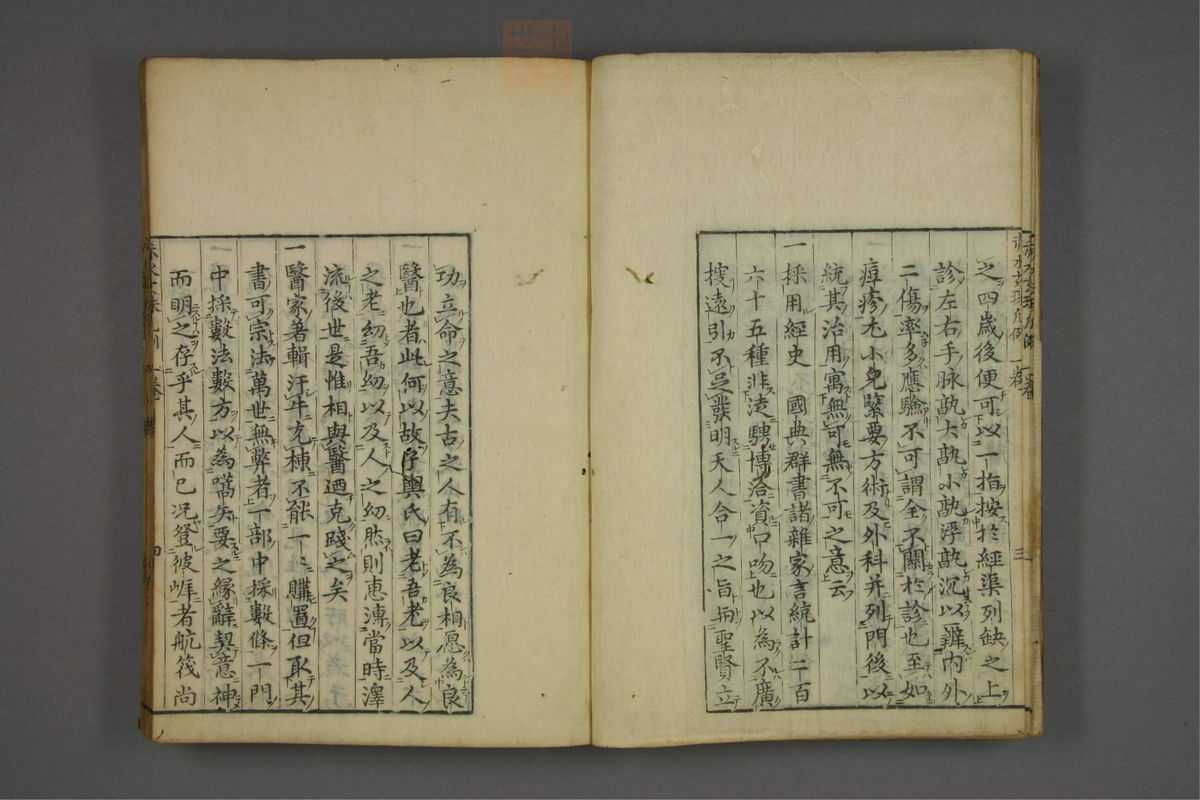 之四歲後便可以一指按於經渠列缺之上
診左右手脉孰大孰小孰浮孰沉以辨內外
二傷率多應驗不可謂全不關於診也至如
痘疹尤小兒緊要方術及外科并列門後以
統其治用寓無可無不可之意云
一採用經史 國典群書諸雜家言統計二百
六十五種非淩騁博洽資口吻也以為不廣
搜遠引不足發明天人合一之旨與聖賢立
功立命之意夫古之人有不為良相愿為良
醫也者此何以故子輿氏曰老吾老以及人
之老幼吾幼以及人之幼然則惠溥當時澤
流後世是惟相與醫迺克踐之矣
一醫家著輯汗牛充棟不能一一購置但取其
書可宗法萬世無弊者一部中採數條一門
中採數法數方以為嚆矢要之緣辭契意神
而明之存乎其人而已况登彼崕者航筏尚